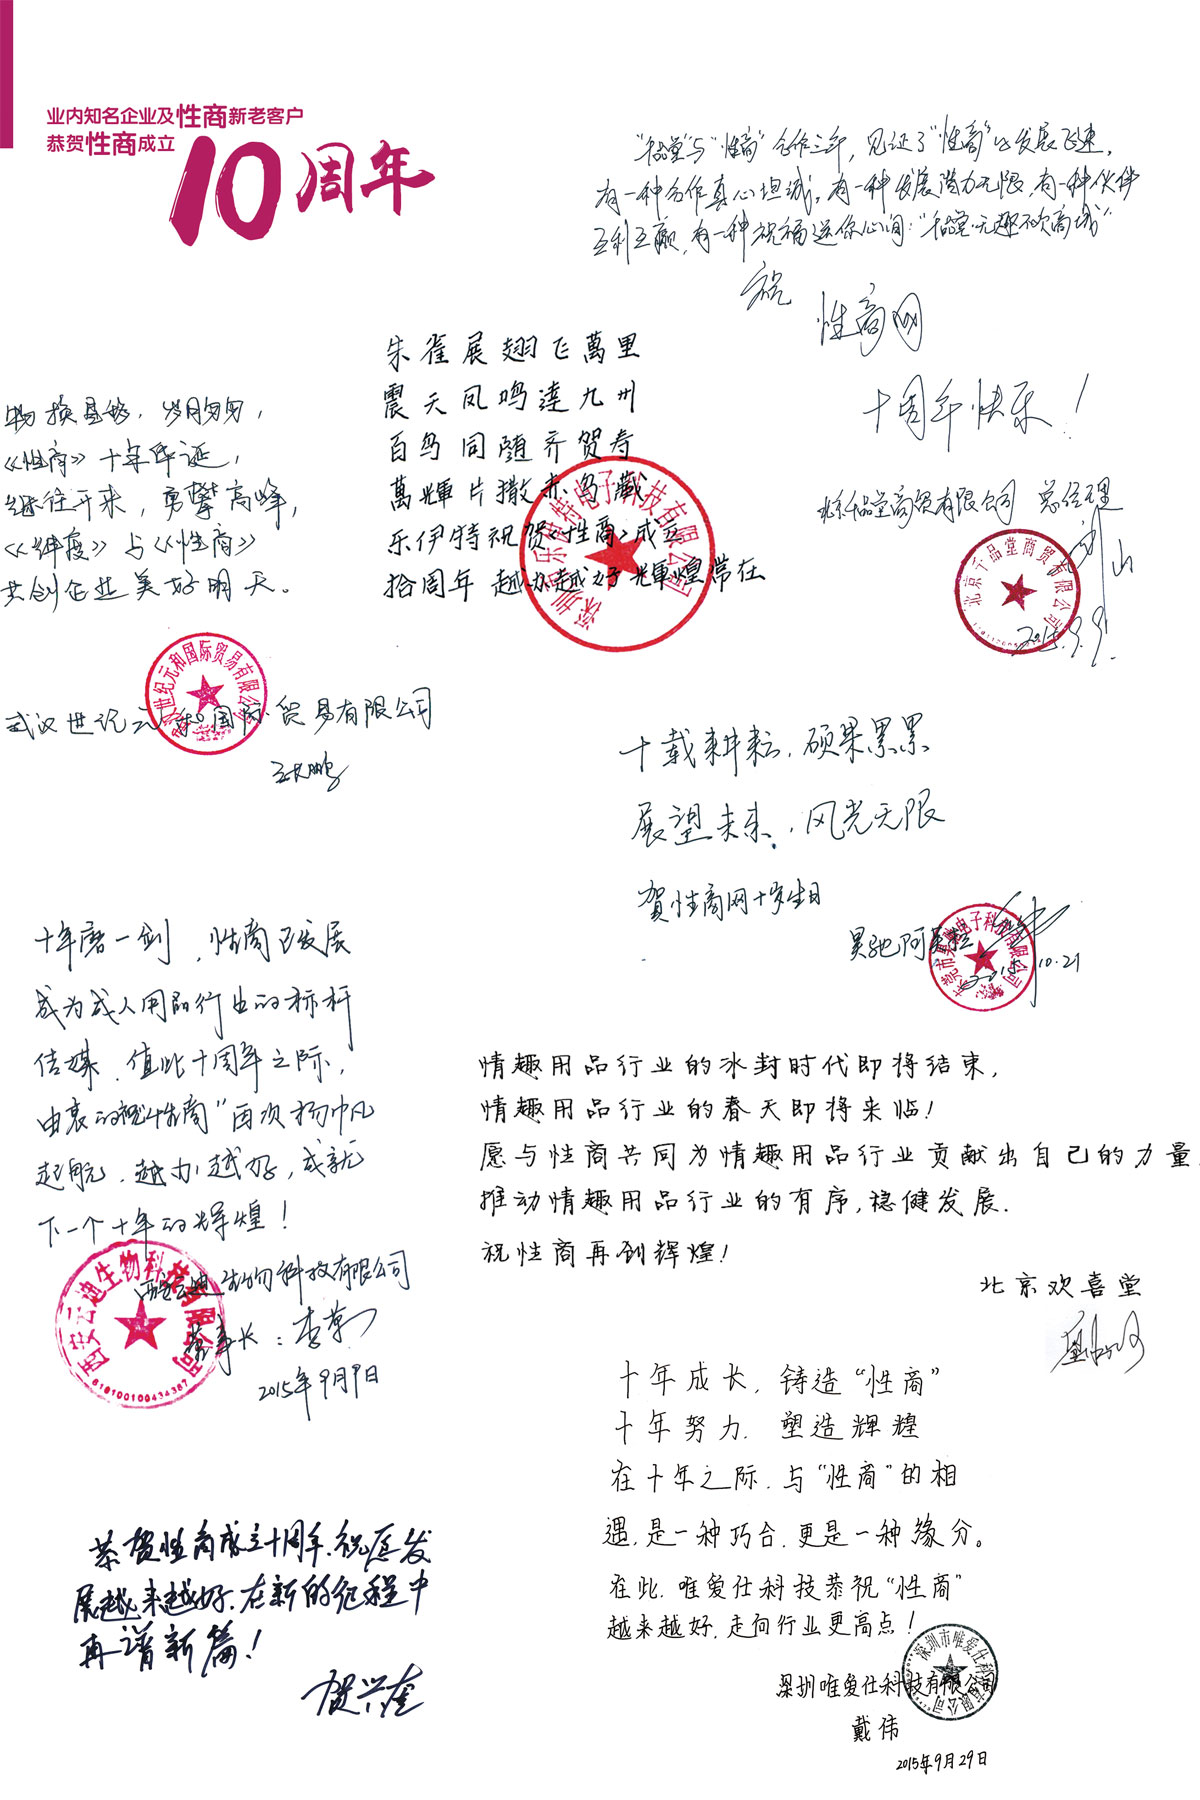 业内知名企业及性商新老客户
恭贺性商成立
10周年
"千品堂"与"性商"合作三年，见证了"性商"的发展飞速，
有一种合作真心坦诚，有一种发展潜力无限，有一种伙伴
互利互赢，有一种祝福送你心间："千品堂·无趣不欢商城"
祝
性商网
十周年快乐！
北京千品堂商贸有限公司 总经理
北京千品堂商贸有限公司
2015.9.9.
朱雀展翅飞萬里
震天凤鸣達九州
百鸟同随齐贺寿
萬輝片撒赤岛藏
乐伊特祝贺《性商》成立
拾周年 越办越好 輝煌常在
深圳市乐伊特电子科技有限公司
物换星移，岁月匆匆，
《性商》十年华诞，
继往开来，勇攀高峰，
《纬度》与《性商》
共创企业美好明天。
武汉世纪元和国际贸易有限公司
武汉世纪元和国际贸易有限公司
十载耕耘，硕果累累
展望未来，风光无限
贺性商网十岁生日
昊驰阿
东莞市昊驰电子科技有限公司
2015.10.21
十年磨一剑，性商已发展
成为成人用品行业的标杆
传媒，值此十周年之际，
由衷的祝"性商"再次扬帆
起航，越办越好，成就
下一个十年的辉煌！
西安云迪生物科技有限公司
西安云迪生物科技有限公司
6101001004343​67
董事长：李
2015年9月9日
情趣用品行业的冰封时代即将结束，
情趣用品行业的春天即将来临！
愿与性商共同为情趣用品行业贡献出自己的力量，
推动情趣用品行业的有序，稳健发展.
祝性商再创辉煌！
北京欢喜堂
十年成长，铸造"性商"
十年努力，塑造辉煌
在十年之际，与"性商"的相
遇，是一种巧合，更是一种缘分。
在此，唯爱仕科技恭祝"性商"
越来越好，走向行业更高点！
深圳唯爱仕科技有限公司
深圳市唯爱仕科技有限公司
戴伟
2015年9月29日
恭贺性商成立十周年，祝愿发
展越来越好，在新的征程中
再谱新篇！
贺兴奎